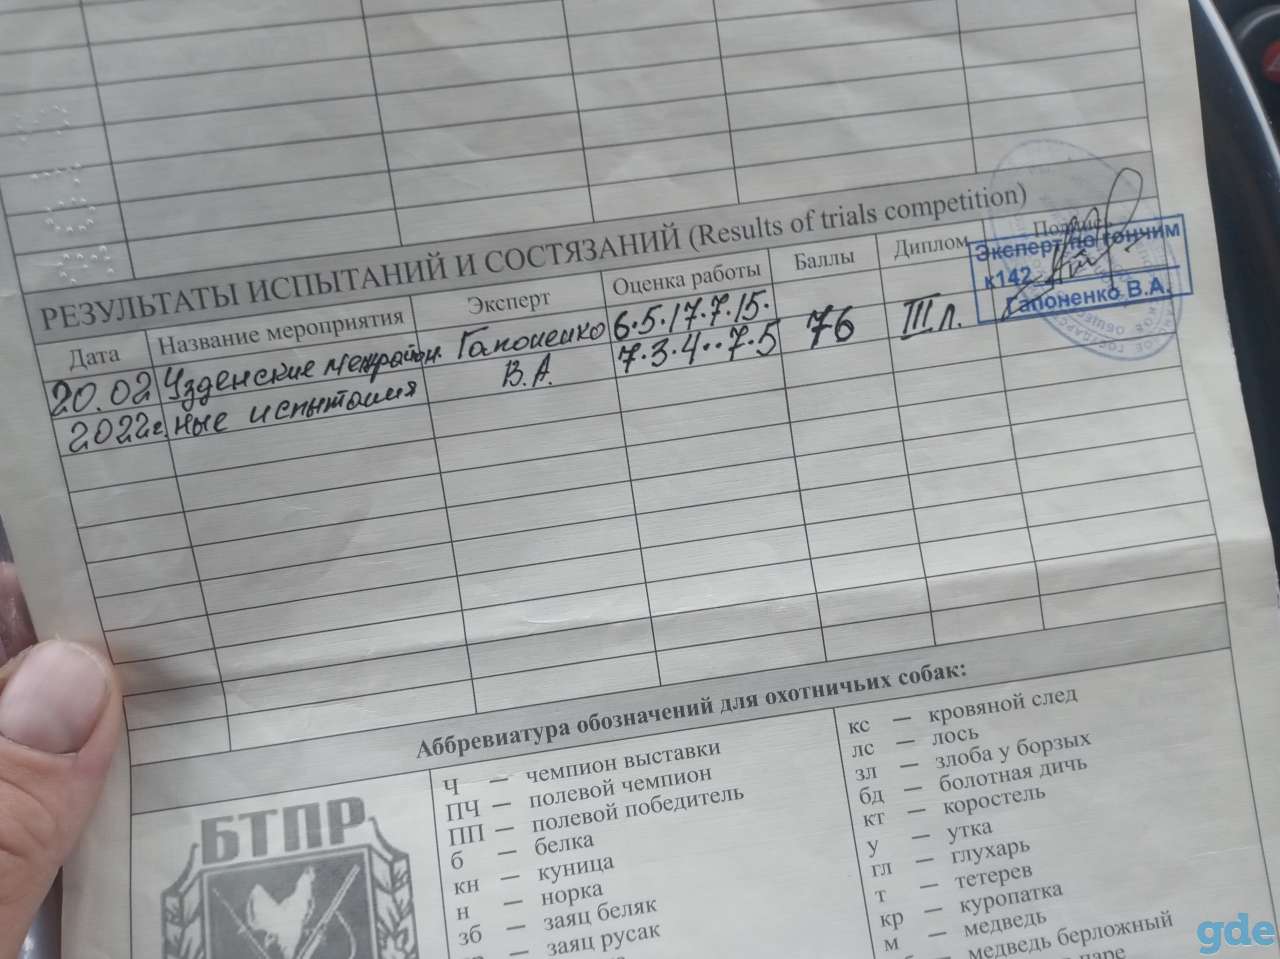 РЕЗУЛЬТАТЫ ИСПЫТАНИЙ И СОСТЯЗАНИЙ (Results of trials competition)
Дата Название мероприятия Эксперт Оценка работы Баллы Диплом
20.02 Узденские межрайон. Гапоненко 6.5.17.7.15. 76 III л.
2022г. ные испытания В.А. 7.3.4..7.5
Эксперт по гончим
к142
Гапоненко В.А.
Аббревиатура обозначений для охотничьих собак:
БТПР
Ч — чемпион выставки
ПЧ — полевой чемпион
ПП — полевой победитель
б — белка
кн — куница
н — норка
зб — заяц беляк
заяц русак
кс — кровяной след
лс — лось
зл — злоба у борзых
бд — болотная дичь
кт — коростель
у — утка
гл — глухарь
т — тетерев
кр — куропатка
м — медведь
медведь берложный
gde